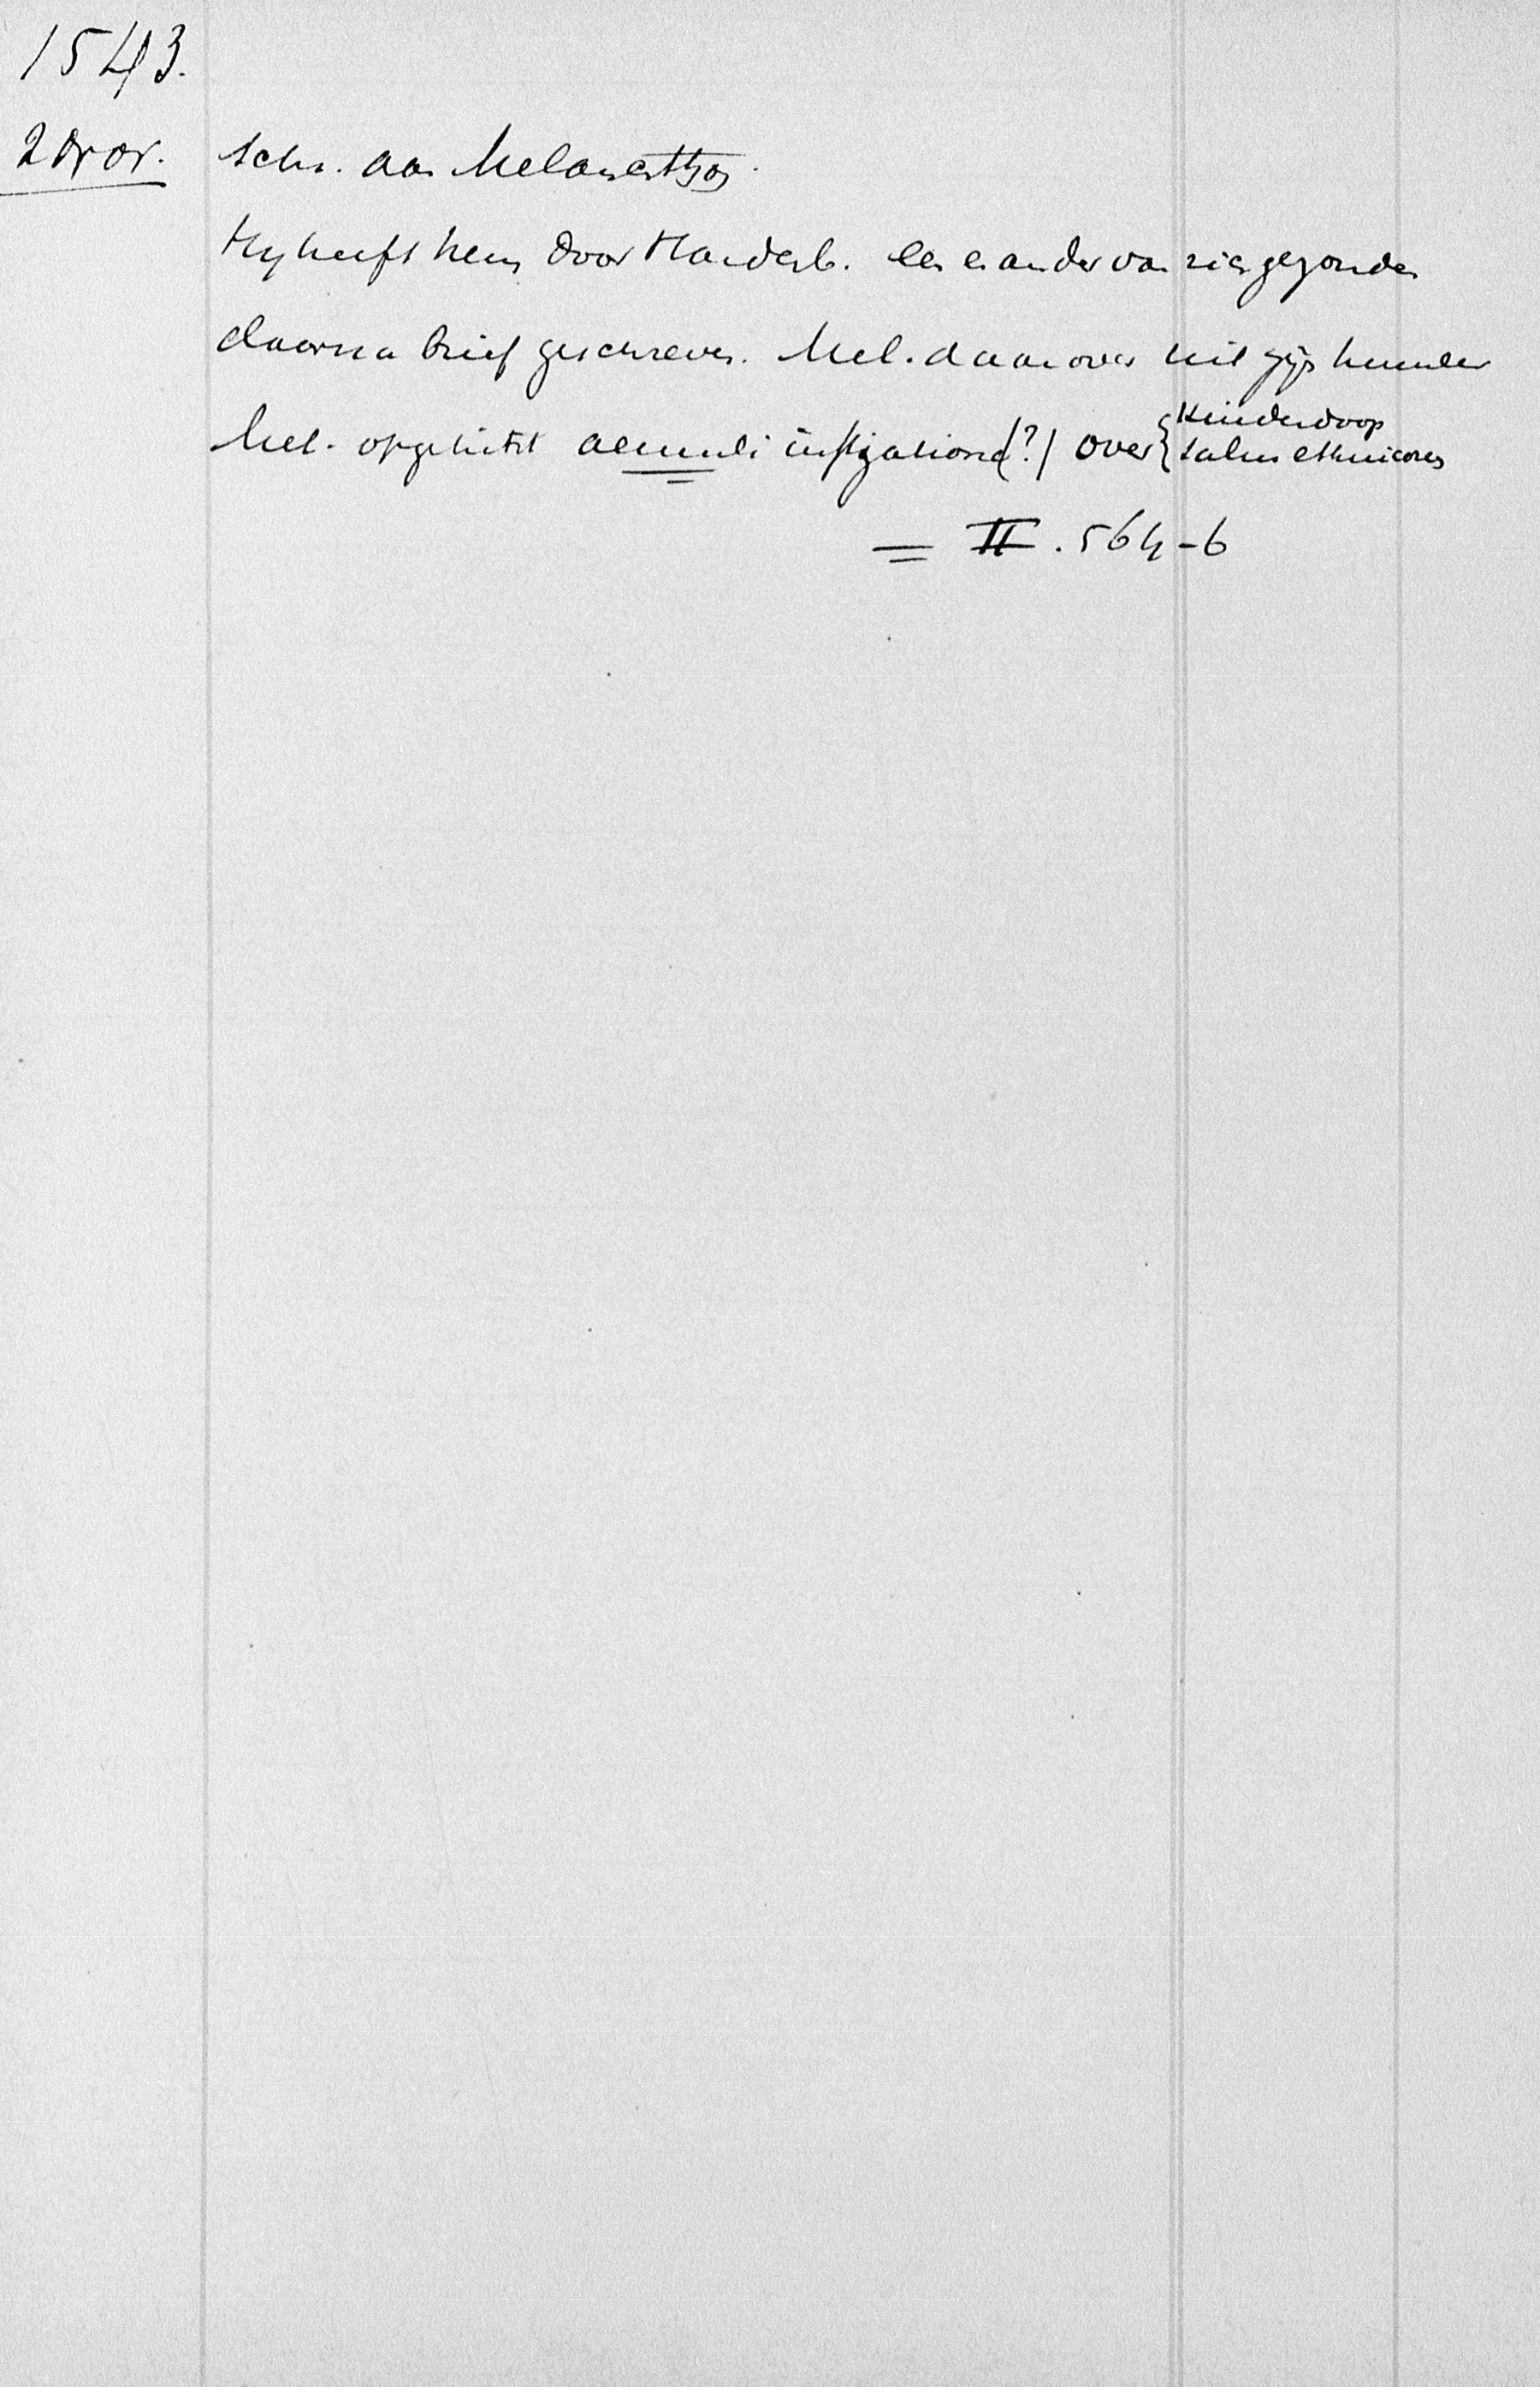 1543.
2 Nov. schr. aan Melanchthon.
Hy heeft hem door Hardenb. een en ander van zich gezonden
daarna brief geschreven. Mel. daarover uit zijn humeur
Mel. opgehitst aemuli instigatione (?) over { Kinderdoop
salus ethnicorum
= II. 564-6